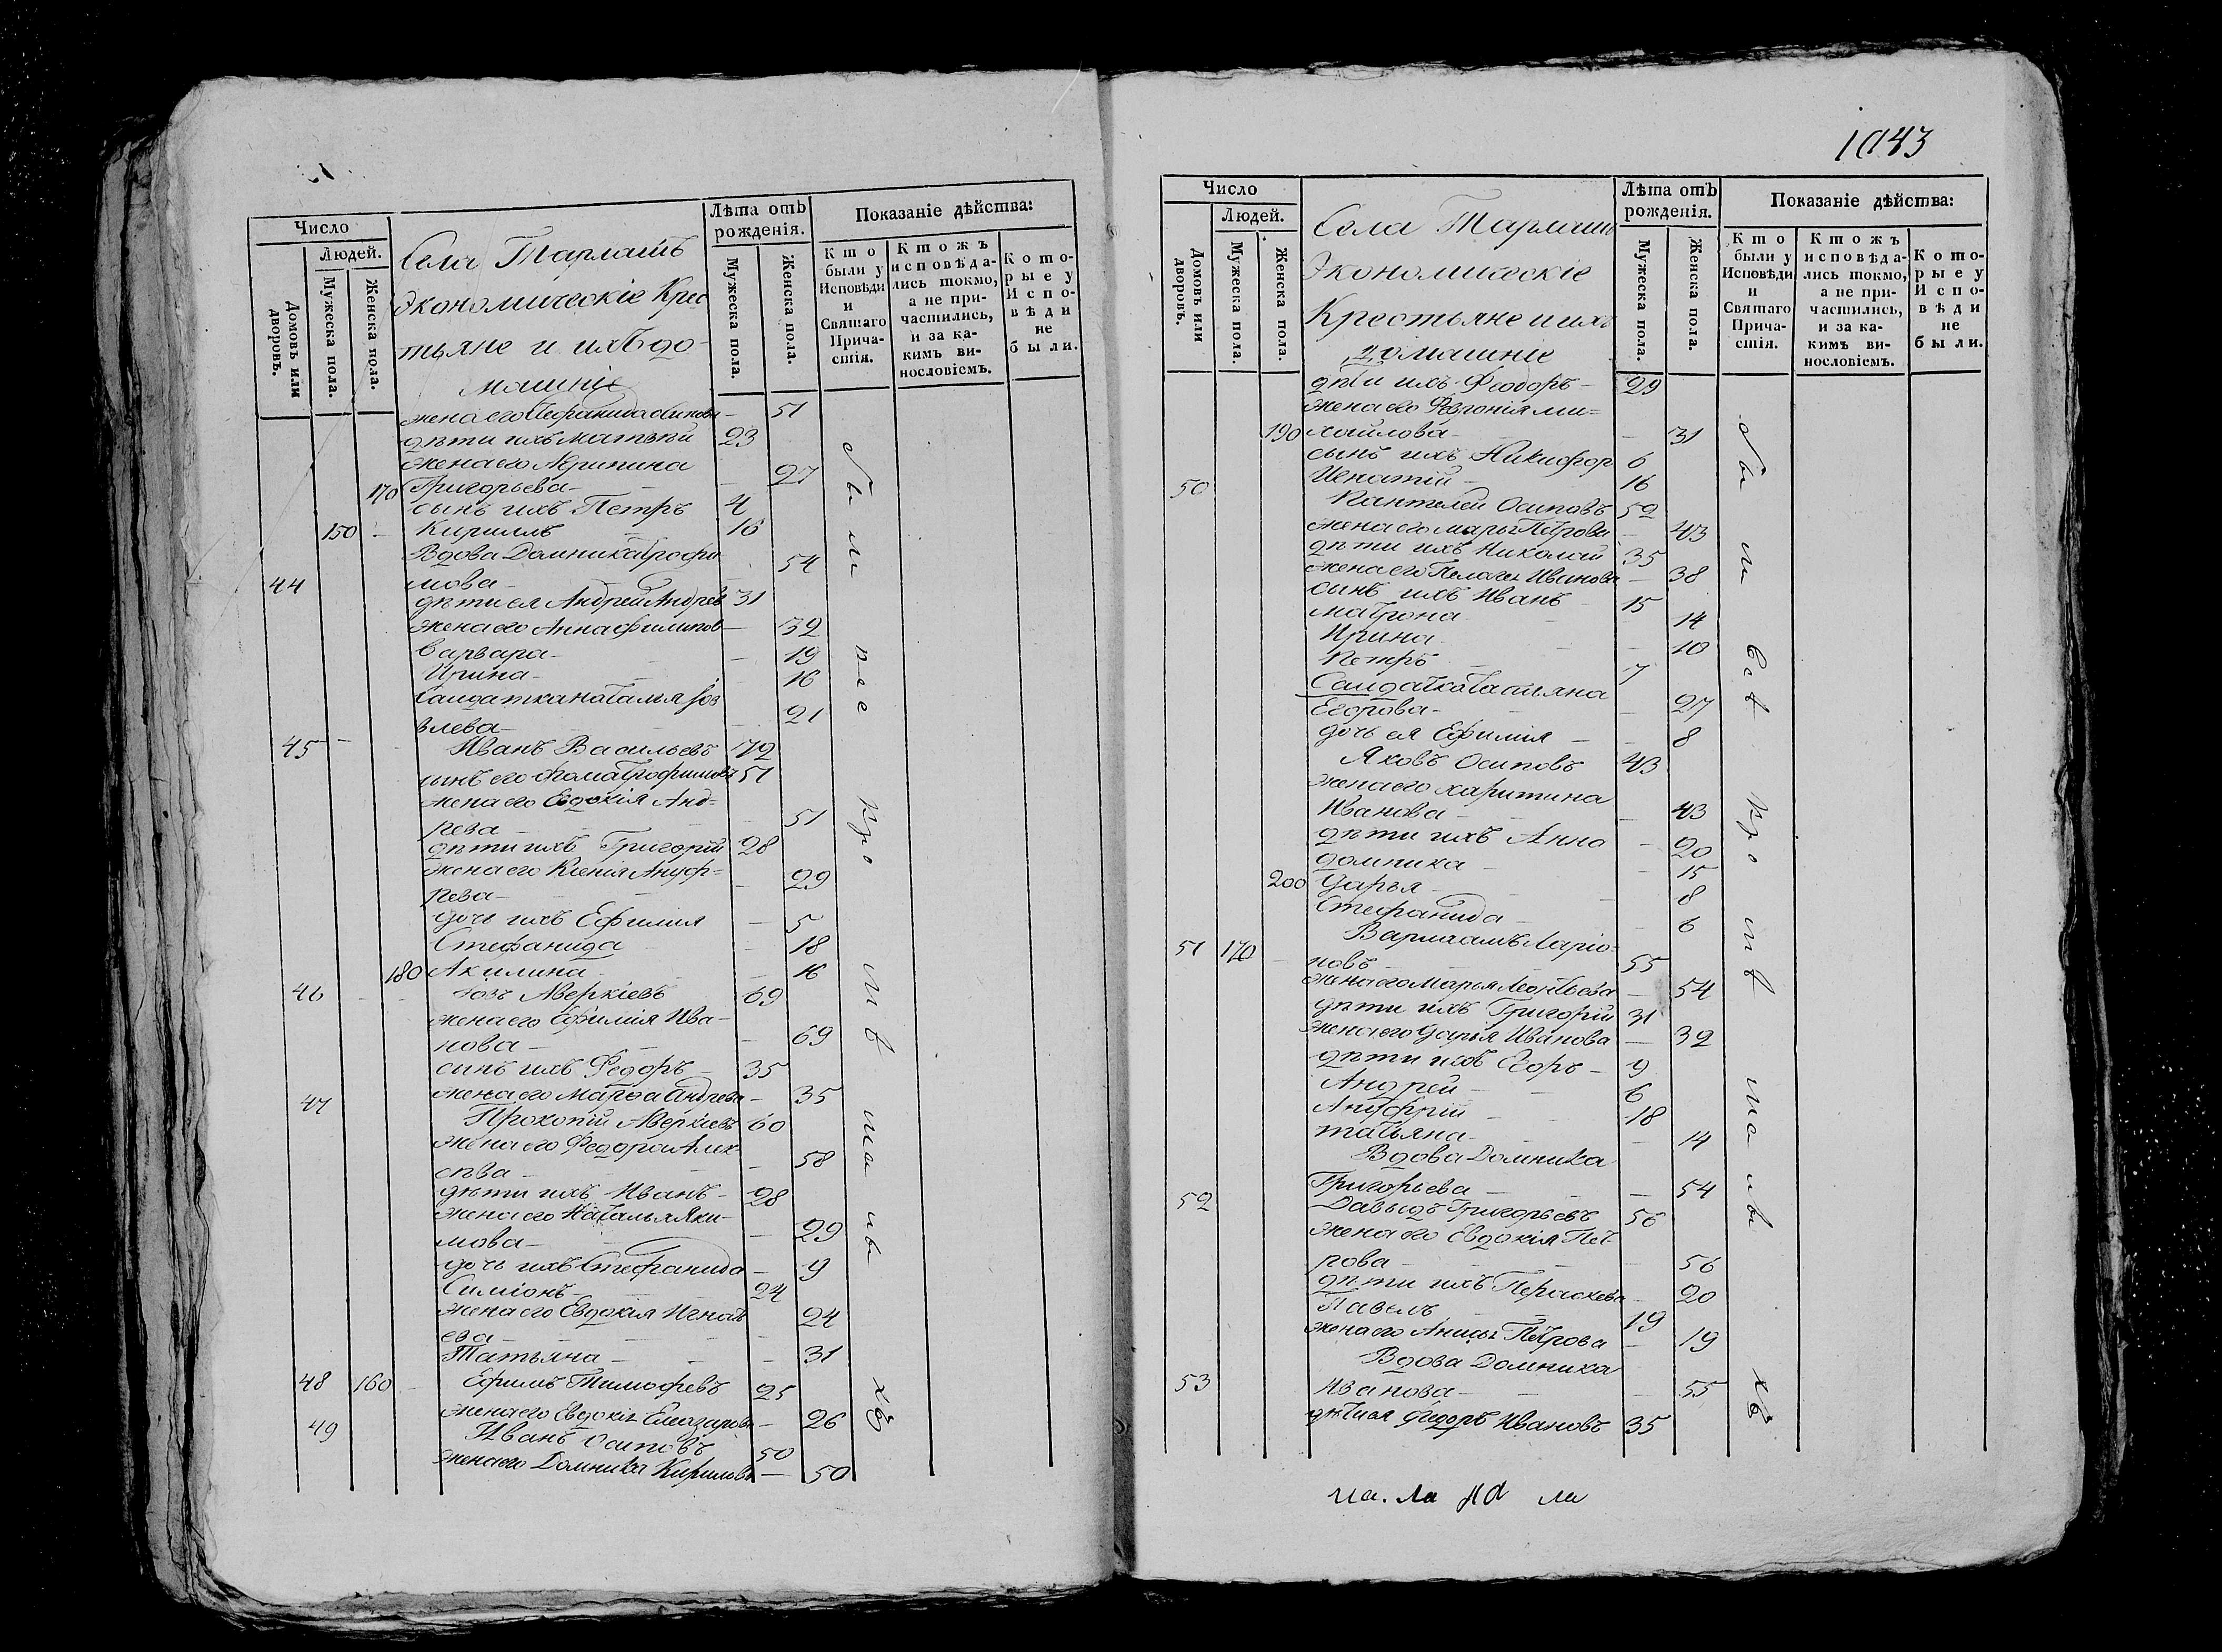 Число
Людей.
Домовъ или дворовъ.
Мужеска пола.
Женска пола.
Села Тарлашъ
Экономическіе Крес
тьяне и ихъ до
машніе
Лѣта отъ рожденія.
Мужеска пола.
Женска пола.
Показаніе дѣйства:
Кто были у Исповѣди и Святаго Причастія.
Ктожъ исповѣдались токмо, а не причастились, и за какимъ винословіемъ.
Которые у Исповѣди не были.
жена его 51
дѣти ихъ Матвѣй 23
жена его Акрипина
170 Григорьева 27
сынъ ихъ Петръ 4
150 Кириллъ 16
Вдова Домника Трофи
44 мова 54
дѣти ея Андрей Андрѣв 31
жена его Анна Филипов 32
Варвара 19
Ирина 16
Салдатка Наталья Іов
влева 21
45 Иванъ Васильевъ 72
сынъ его Фома Трофимовъ 51
жена его Евдокія Анд=
рева 51
дѣти ихъ Григорій 28
жена его Ксенія Ануф=
рева 29
дочь ихъ Ефимія 5
Стефанида 18
180 Акилина 16
46 Іовъ Аверкіевъ 69
жена его Ефимія Ива-
нова 69
синъ ихъ Ѳедоръ 35
жена его Марѳа Андрева 35
47 Прокопій Аверкіевъ 60
жена его Ѳедора Алек
сѣва 58
дѣти ихъ Иванъ 28
жена его Наталья Яки-
мова 29
дочь ихъ Стефанида 9
Симіонъ 24
жена его Евдокія Игнать
ева 24
Татьяна 31
48 160 Ефимъ Тимофевъ 25
жена его Евдокія Елеазарова 26
49 Иванъ Осиповъ 50
жена его Домника Кирилова 50
1043
Число
Людей.
Домовъ или дворовъ.
Мужеска пола.
Женска пола.
Села Тарлашъ
Экономическіе
Крестьяне и ихъ
домашніе
Лѣта отъ рожденія.
Мужеска пола.
Женска пола.
Показаніе дѣйства:
Кто были у Исповѣди и Святаго Причастія.
Ктожъ исповѣдались токмо, а не причастились, и за какимъ винословіемъ.
Которые у Исповѣди не были.
дѣти ихъ Ѳеодоръ 29
жена его Ми=
190 хайлова 31
сынъ ихъ Никифор 6
Игнатій 16
50 Пантелей Осиповъ 52
жена его Марья Петрова 43
дѣти ихъ Николай 35
жена его Пелагея Иванова 38
сынъ ихъ Иванъ 15
Матрона 14
Ирина 10
Петръ 7
Салдатка Татияна
Егорова 27
дочь ея Ефимія 8
Яковъ Осиповъ 43
жена его Харитина
Иванова 43
дѣти ихъ Анна 20
Домника 15
200 Дарья 8
Стефанида 6
51 170 Варлаамъ Ларіо-
новъ 55
жена его Марья Леонтьева 54
дѣти ихъ Григорій 31
жена его Дарья Иванова 32
дѣти ихъ Егоръ 9
Андрей 6
Ануфрій 18
Татьяна 14
Вдова Домника
Григорьева 54
52 Давыдъ Григорьевъ 56
жена его Евдокія Пет-
рова 56
дѣти ихъ Пераскева 20
Павелъ 19
жена его Анисья Петрова 19
Вдова Домника
53 Иванова 55
дѣти ея Ѳедоръ Ивановъ 35